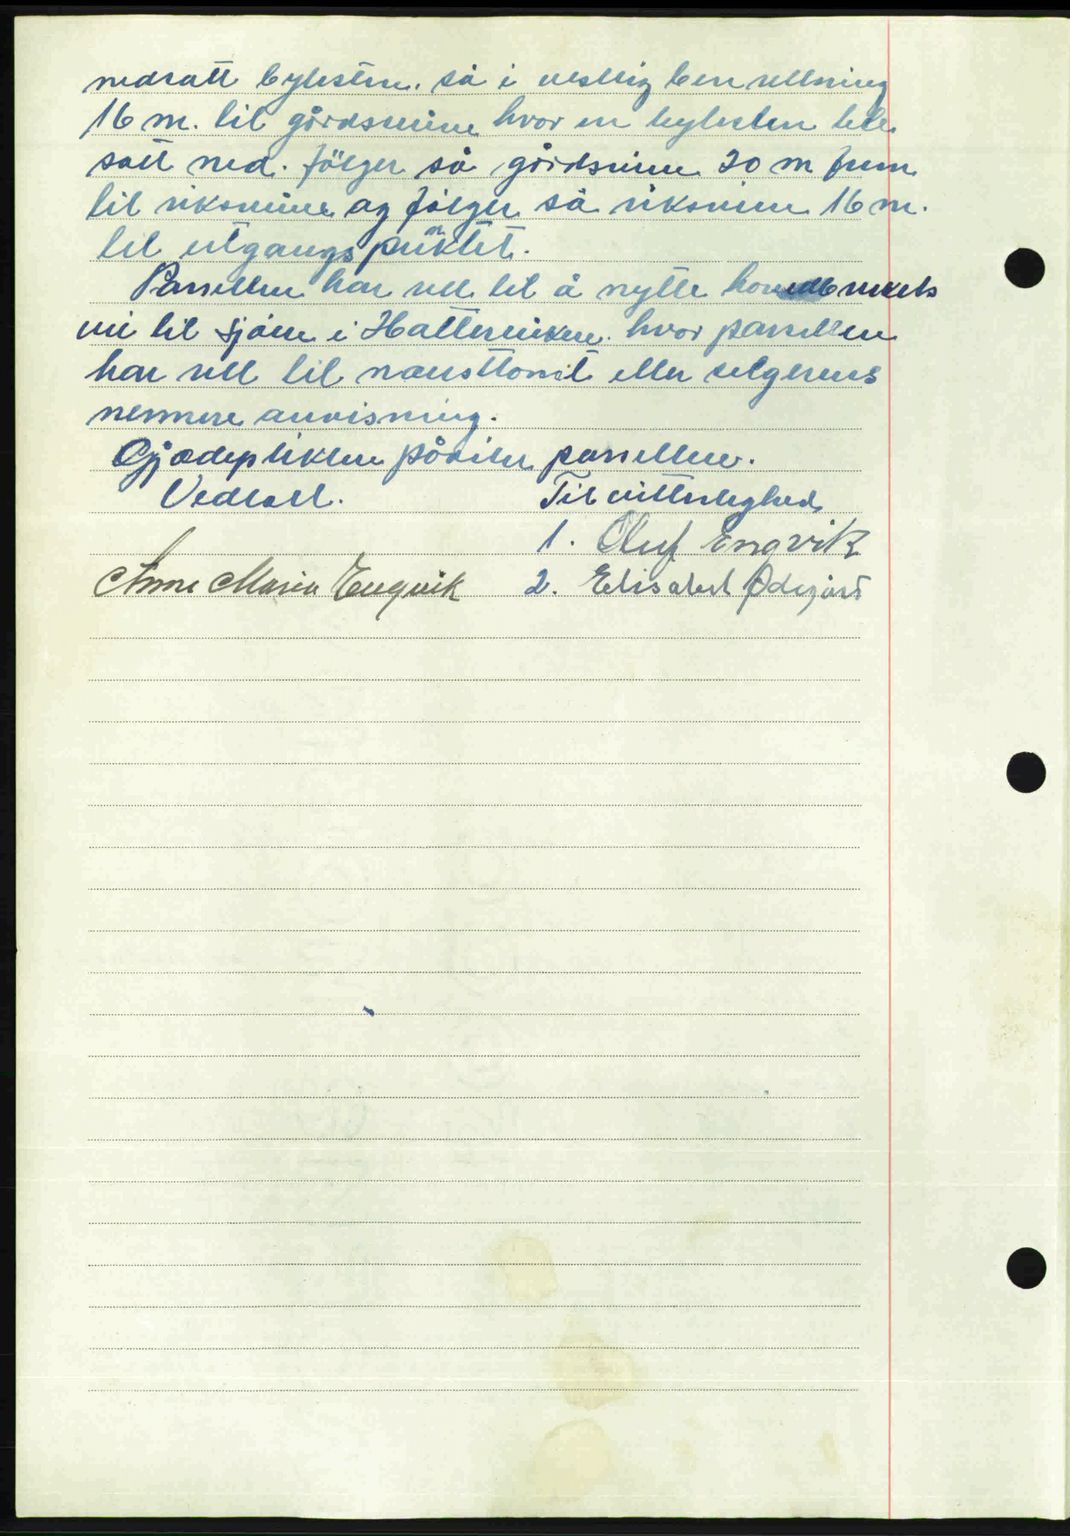 nedsatt bytesten. så i vestlig ben retning
16 m. til gårdsveien hvor en bytesten ble
satt ned. følger så gårdsveien 20 m frem
til riksveien og følger så riksveien 16 m.
til utgangspunktet.
Parsellen har rett til å nytte hovedbrukets
vei til sjøen i Hatleviken hvor parsellen
har rett til nausttomt etter selgerens
nermere anvisning.
Gjerdeplikten påviler parsellen.
Vedtatt. Til vitterlighed
1. Oluf Engvik
Anne Marie Engvik 2. Elisabet Ødegård